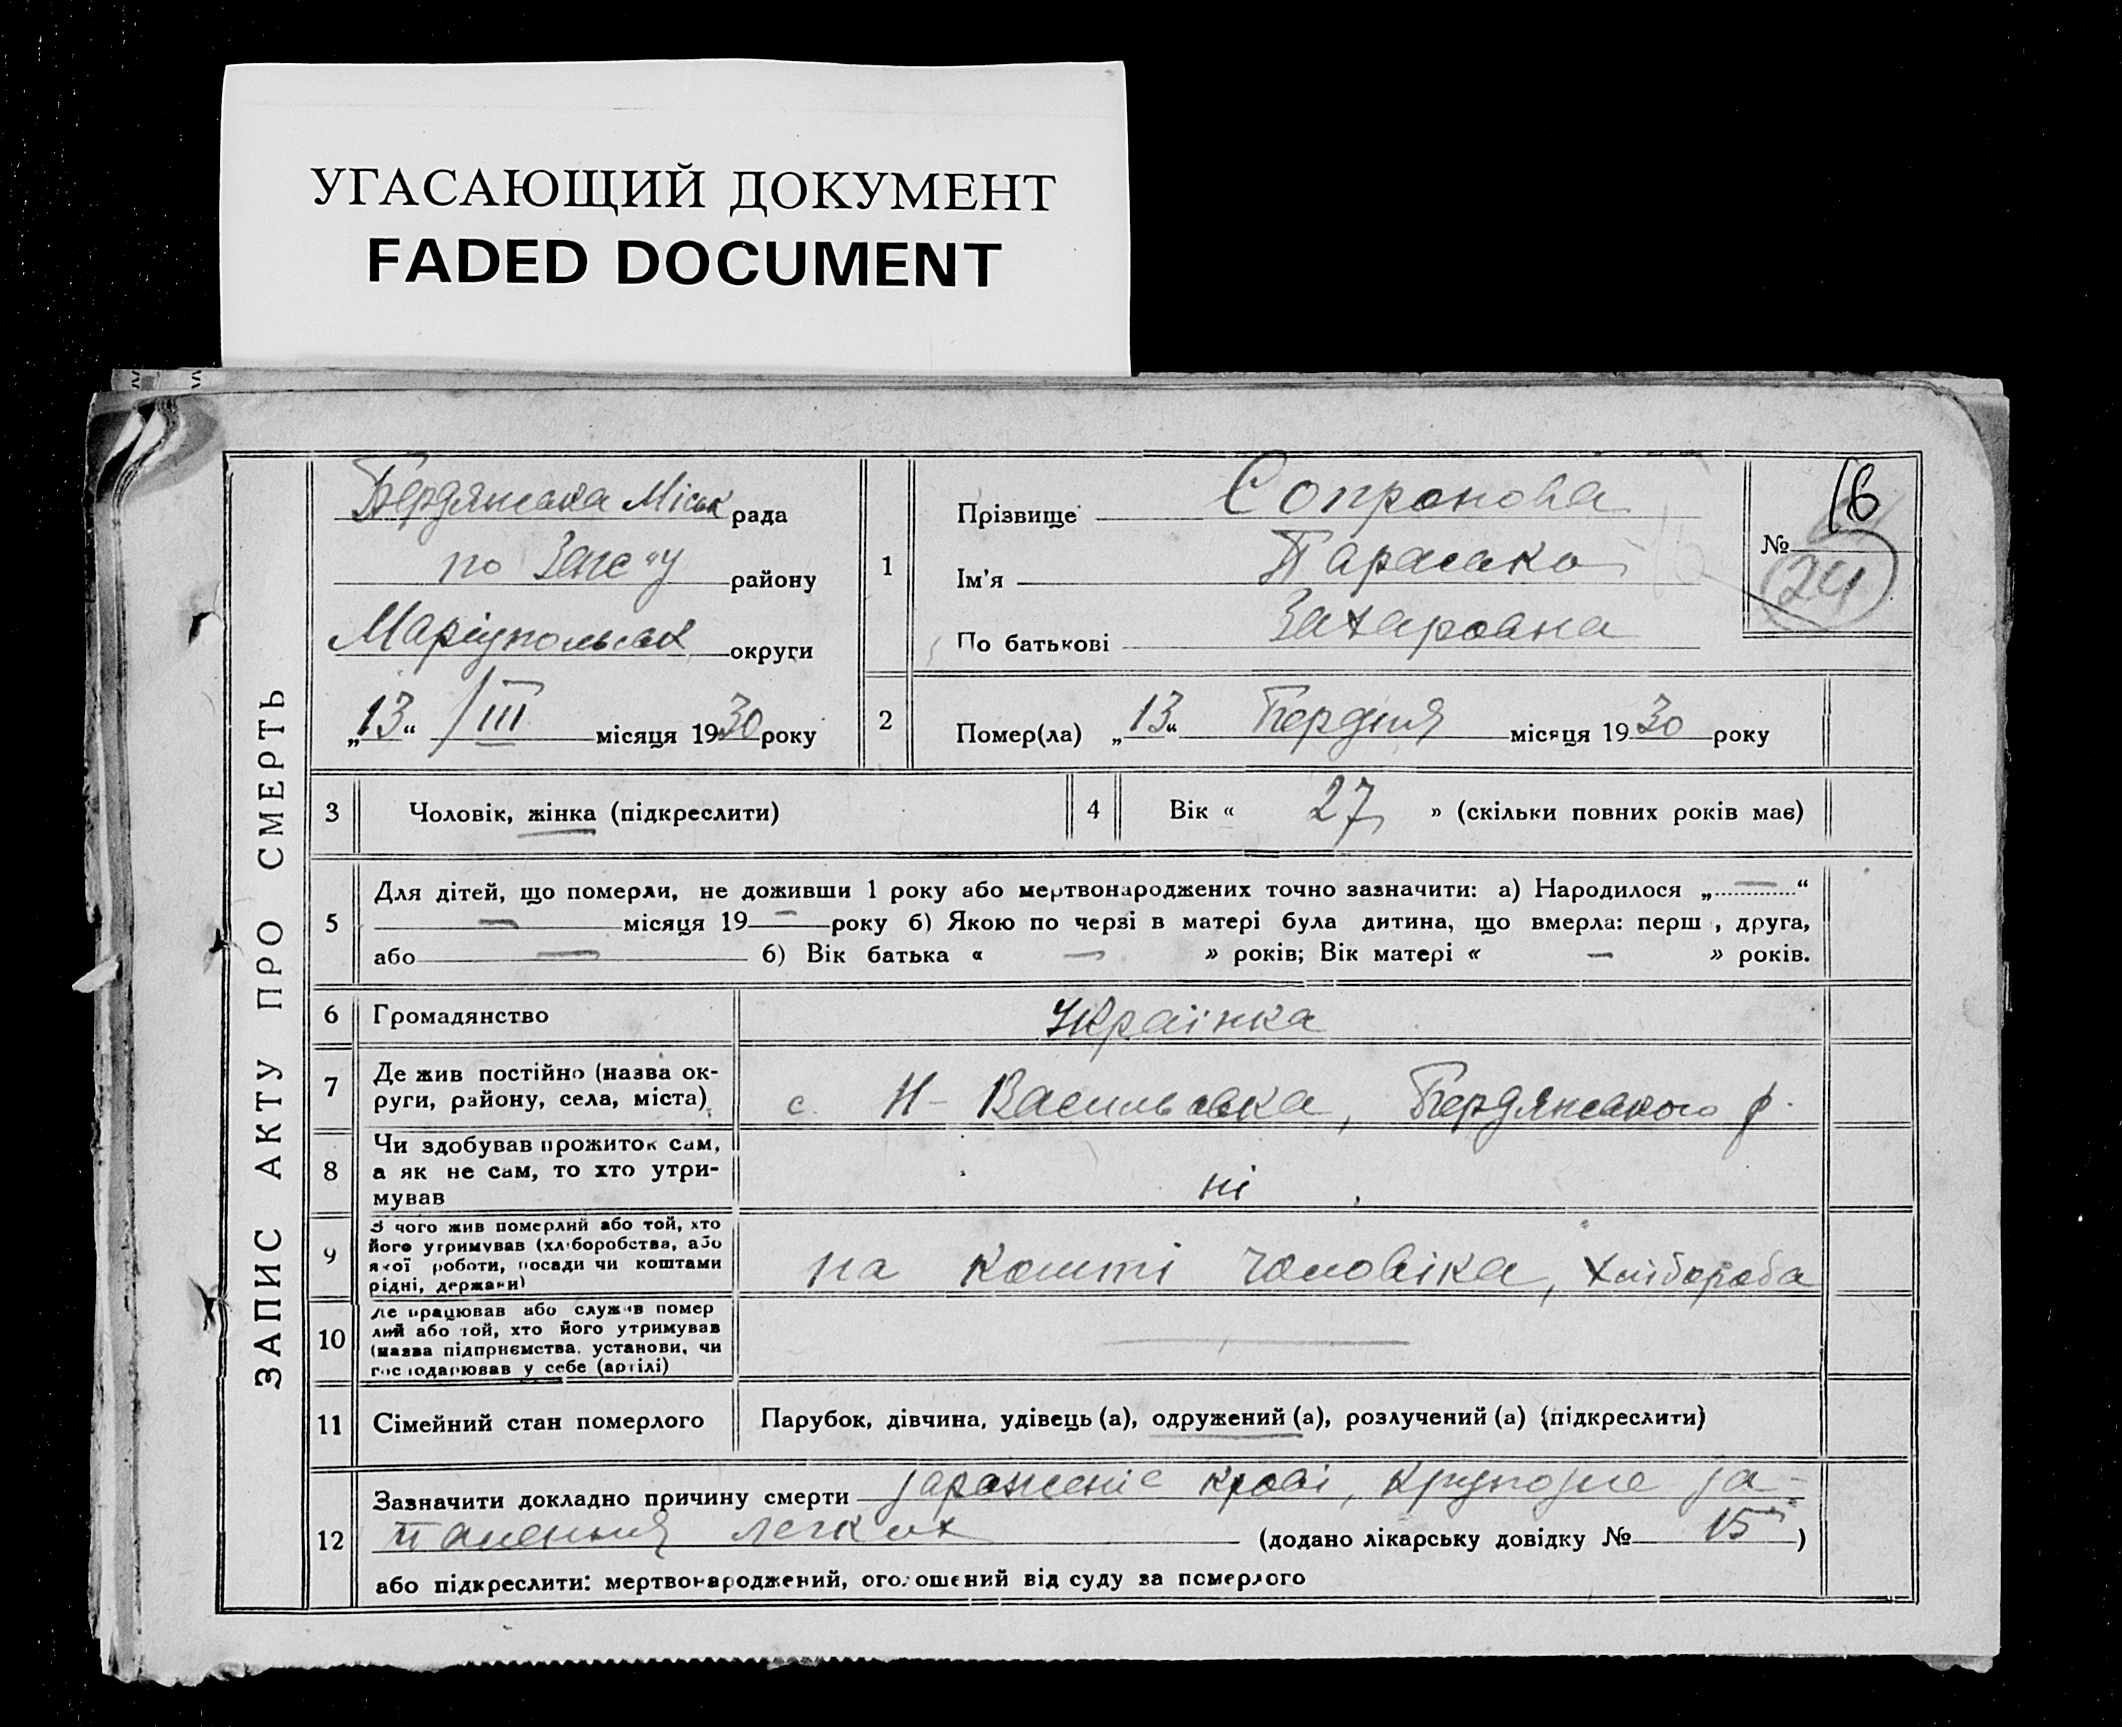 УГАСАЮЩИЙ ДОКУМЕНТ
FADED DOCUMENT
ЗАПИС АКТУ ПРО СМЕРТЬ
Бердянська Міськ рада
по Запс"у району
Маріупольськ округи
„13“ /III місяця 1930 року
1
Прізвище Сопронова
Ім'я Параска
По батькові Захаровна
№ 16
24
2 Помер(ла) „13“ місяця 1930 року
3 Чоловік, жінка (підкреслити)
4 Вік « 27 » (скільки повних років має)
5 Для дітей, що померли, не доживши 1 року або мертвонароджених точно зазначити: а) Народилося „—“
— місяця 19 — року б) Якою по черзі в матері була дитина, що вмерла: перш , друга,
або — 6) Вік батька « — » років; Вік матері « — » років.
6 Громадянство Українка
7 Де жив постійно (назва ок-
руги, району, села, міста) с. Н-Васильовка, Бердянського р.
8 Чи здобував прожиток сам,
а як не сам, то хто утри-
мував ні
9 З чого жив померлий або той, хто
його утримував (хліборобства, або
якої роботи, посади чи коштами
рідні, держави) на кошті чоловіка, хлібороба
10 Де працював або служив помер
лий або той, хто його утримував
(назва підприємства, установи, чи
господарював у себе (артілі) —
11 Сімейний стан померлого Парубок, дівчина, удівець (а), одружений (а), розлучений (а) (підкреслити)
12 Зазначити докладно причину смерти зараженіе крові, крупозне за-
палення легких (додано лікарську довідку № 15)
або підкреслити: мертвонароджений, оголошений від суду за померлого